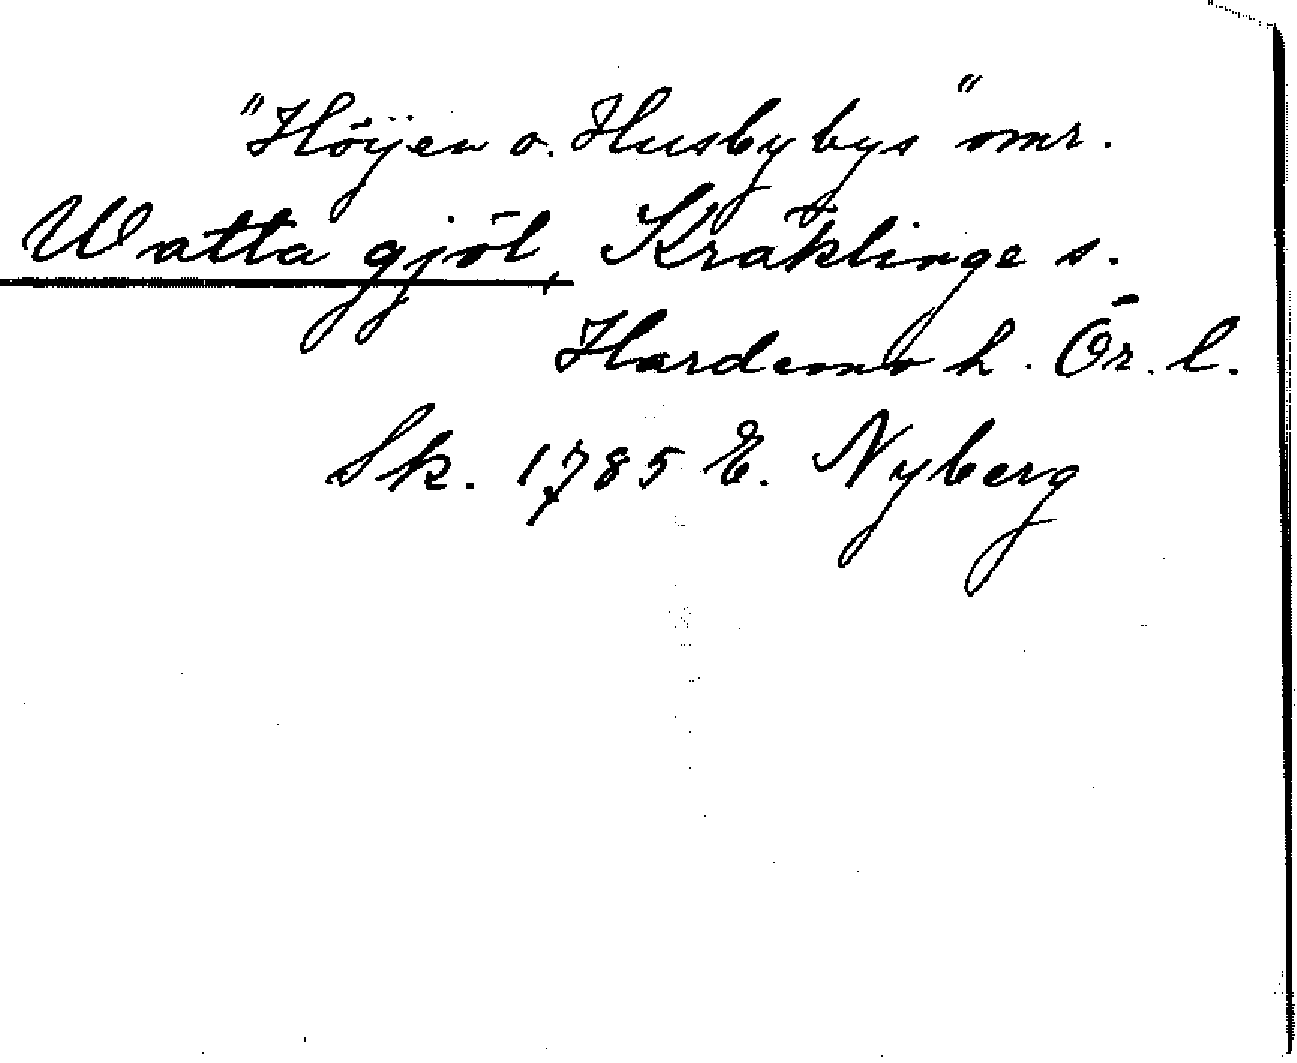 "Höÿen o. Husby bys" omr.
Watta gjöl, Kräklinge s.
Hardemo h. Ör. l.
Sk. 1785 E. Nyberg